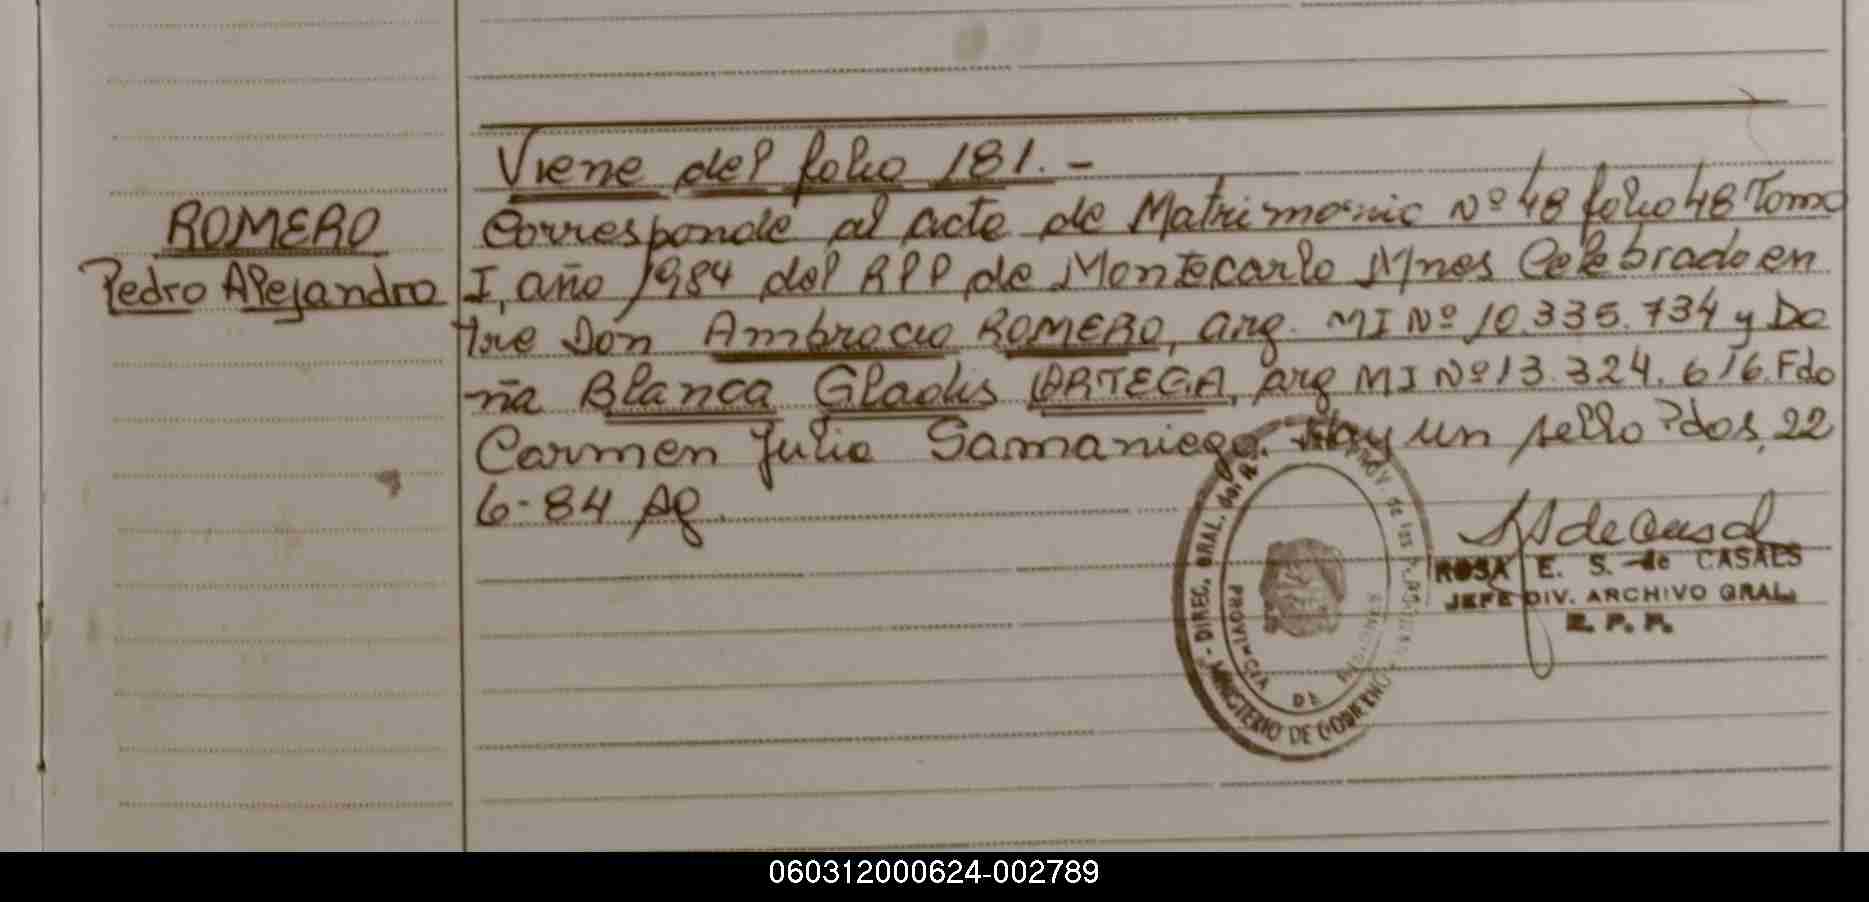 Viene del folio 181.-
ROMERO
Pedro Alejandro
Corresponde al acta de Matrimonio Nº 48 folio 48 Tomo
I, año 1984 del RPP de Montecarlo Mnes Celebrado en
tre Don Ambrocio ROMERO, arg. MI Nº 10.335.734 y Do
ña Blanca Gladis ORTEGA, arg MI Nº 13.324.616. Fdo
Carmen Julia Samaniego. Hay un sello Pdos, 22
6-84 Ag.
DIREC. GRAL. del R. PROV. de las PERSONAS
MINISTERIO DE GOBIERNO
PROVINCIA DE MISIONES
ROSA E. S. de CASALS
JEFE DIV. ARCHIVO GRAL.
R. P. P.
060312000624-002789